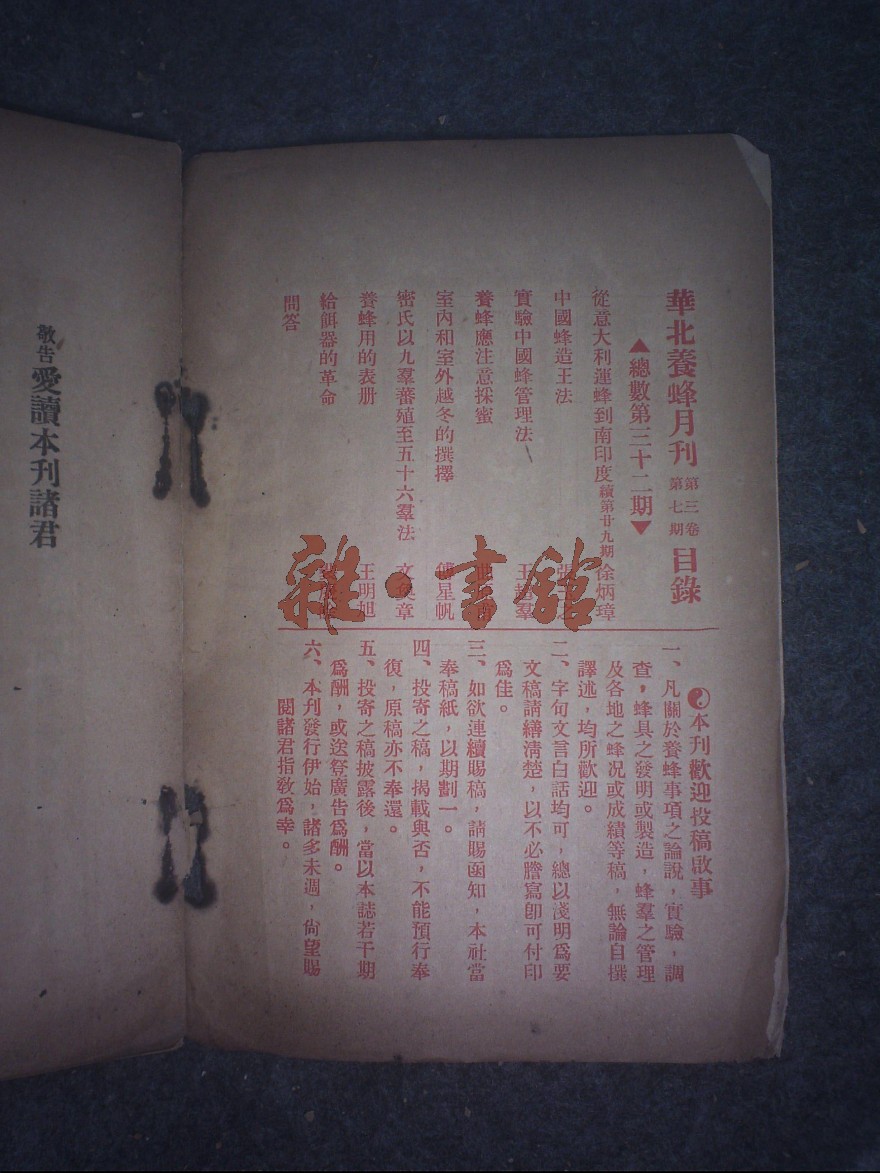 華北養蜂月刊 第三卷第七期 目錄
▲總數第三十二期▼
從意大利運蜂到南印度 續第廿九期 徐炳璋
中國蜂造王法
實驗中國蜂管理法 王 羣
養蜂應注意採蜜
室內和室外越冬的撰擇 星帆
密氏以九羣蕃殖至五十六羣法 文 章
養蜂用的表册 王明旭
給餌器的革命
問答
本刊歡迎投稿啟事
一、凡關於養蜂事項之論說，實驗，調
查，蜂具之發明或製造，蜂羣之管理
及各地之蜂况或成績等稿，無論自撰
譯述，均所歡迎。
二、字句文言白話均可，總以淺明爲要
文稿請繕清楚，以不必謄寫卽可付印
爲佳。
三、如欲連續賜稿，請賜函知，本社當
奉稿紙，以期劃一。
四、投寄之稿，揭載與否，不能預行奉
復，原稿亦不奉還。
五、投寄之稿披露後，當以本誌若干期
爲酬，或送登廣告爲酬。
六、本刊發行伊始，諸多未週，尙望賜
閱諸君指敎爲幸。
敬告愛讀本刊諸君
雜·書館